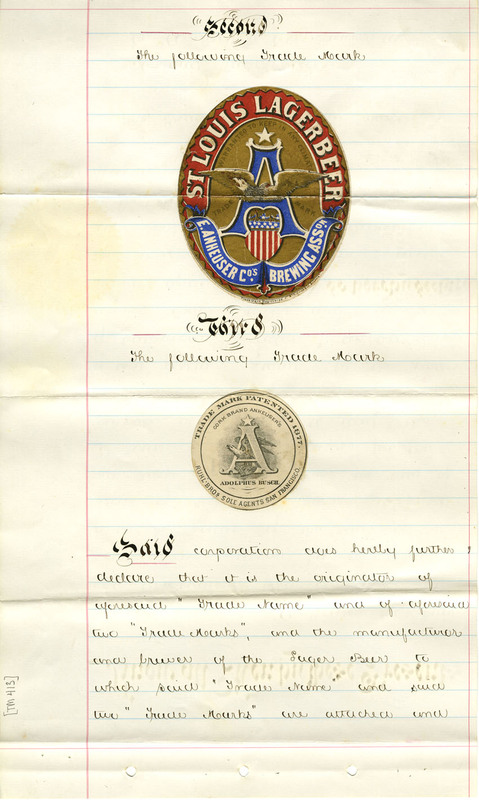 Second
The following Trade Mark
ST LOUIS LAGERBEER
TRADE MARK
E. ANHEUSER CO'S BREWING ASSON
Third
The following Trade Mark
TRADE MARK PATENTED 1877.
CORK BRAND ANHEUSER'S
A
ADOLPHUS BUSCH
RUHL BROS SOLE AGENTS SAN FRANCISCO.
Said corporation does hereby further
declare that it is the originator of
aforesaid "Trade Name" and of aforesaid
two "Trade Marks", and the manufacturer
and brewer of the Lager Beer to
which said "Trade Name" and said
two "Trade Marks" are attached and
[TM 413]